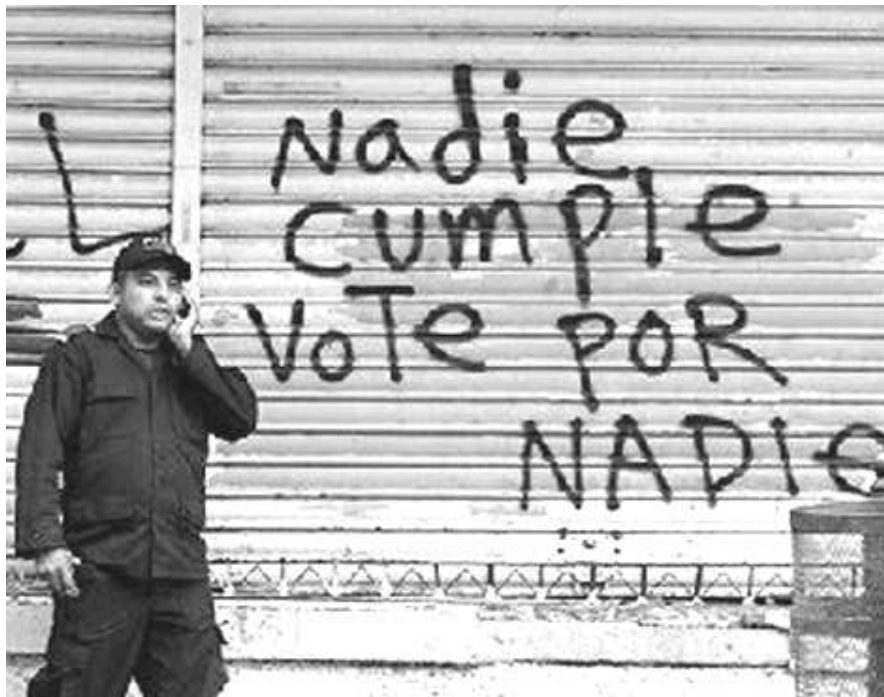 Nadie
cumple
VoTe POR
NADIe